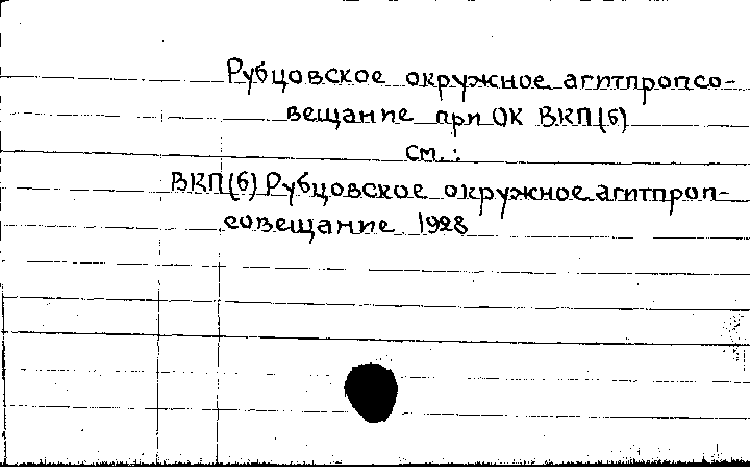 Рубцовское окружное агитпропсо-
вещание при ОК ВКП(б)
см.:
ВКП(б) Рубцовское окружное агитпроп-
совещание 1928